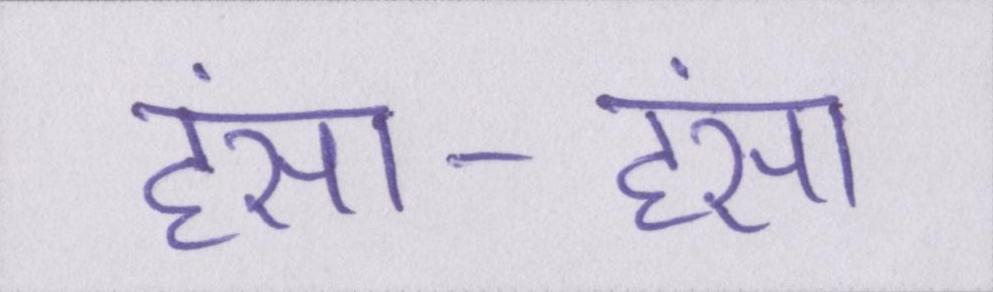 हंसा - हंसा